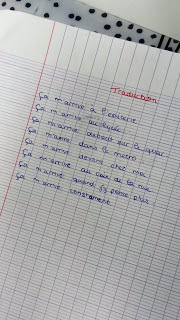 Traduction
Ça m'arrive à l'épicerie
Ça m'arrive au lycée
Ça m'arrive debout sur le quai
Ça m'arrive dans le métro
Ça m'arrive devant chez moi
Ça m'arrive au coin de la rue
Ça m'arrive quand j'y pense plus
Ça m'arrive constamment